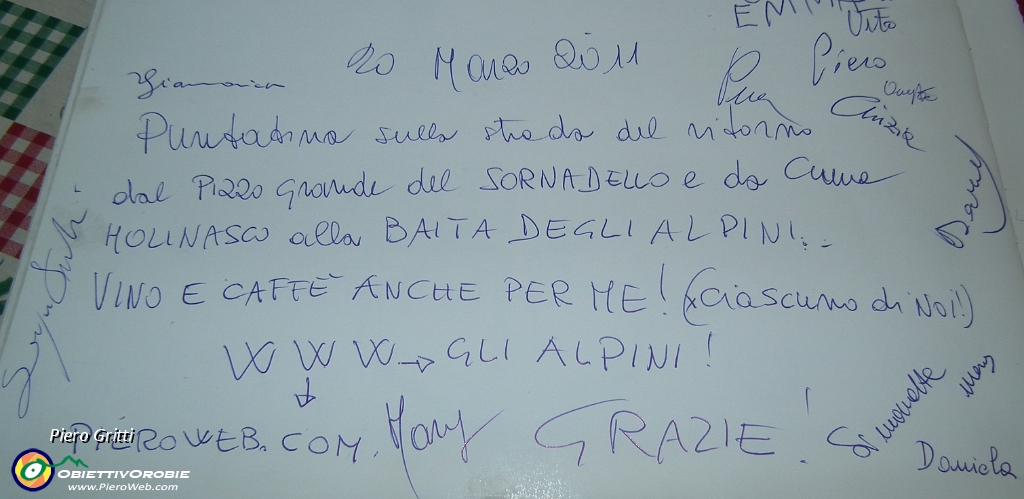 EMMA
Vito
20 Marzo 2011
Piero
Cinzia
Puntatina sulla strada del ritorno
dal PIZZO Grande del SORNADELLO e da Cima
MOLINASCO alla BAITA DEGLI ALPINI...
VINO E CAFFÈ ANCHE PER ME! (x ciascuno di NOI!)
W W W → GLI ALPINI!
↓
PIEROWEB.COM. Mary GRAZIE!
Simonetta
Daniela
Piero Gritti
OBIETTIVOROBIE
www.PieroWeb.com